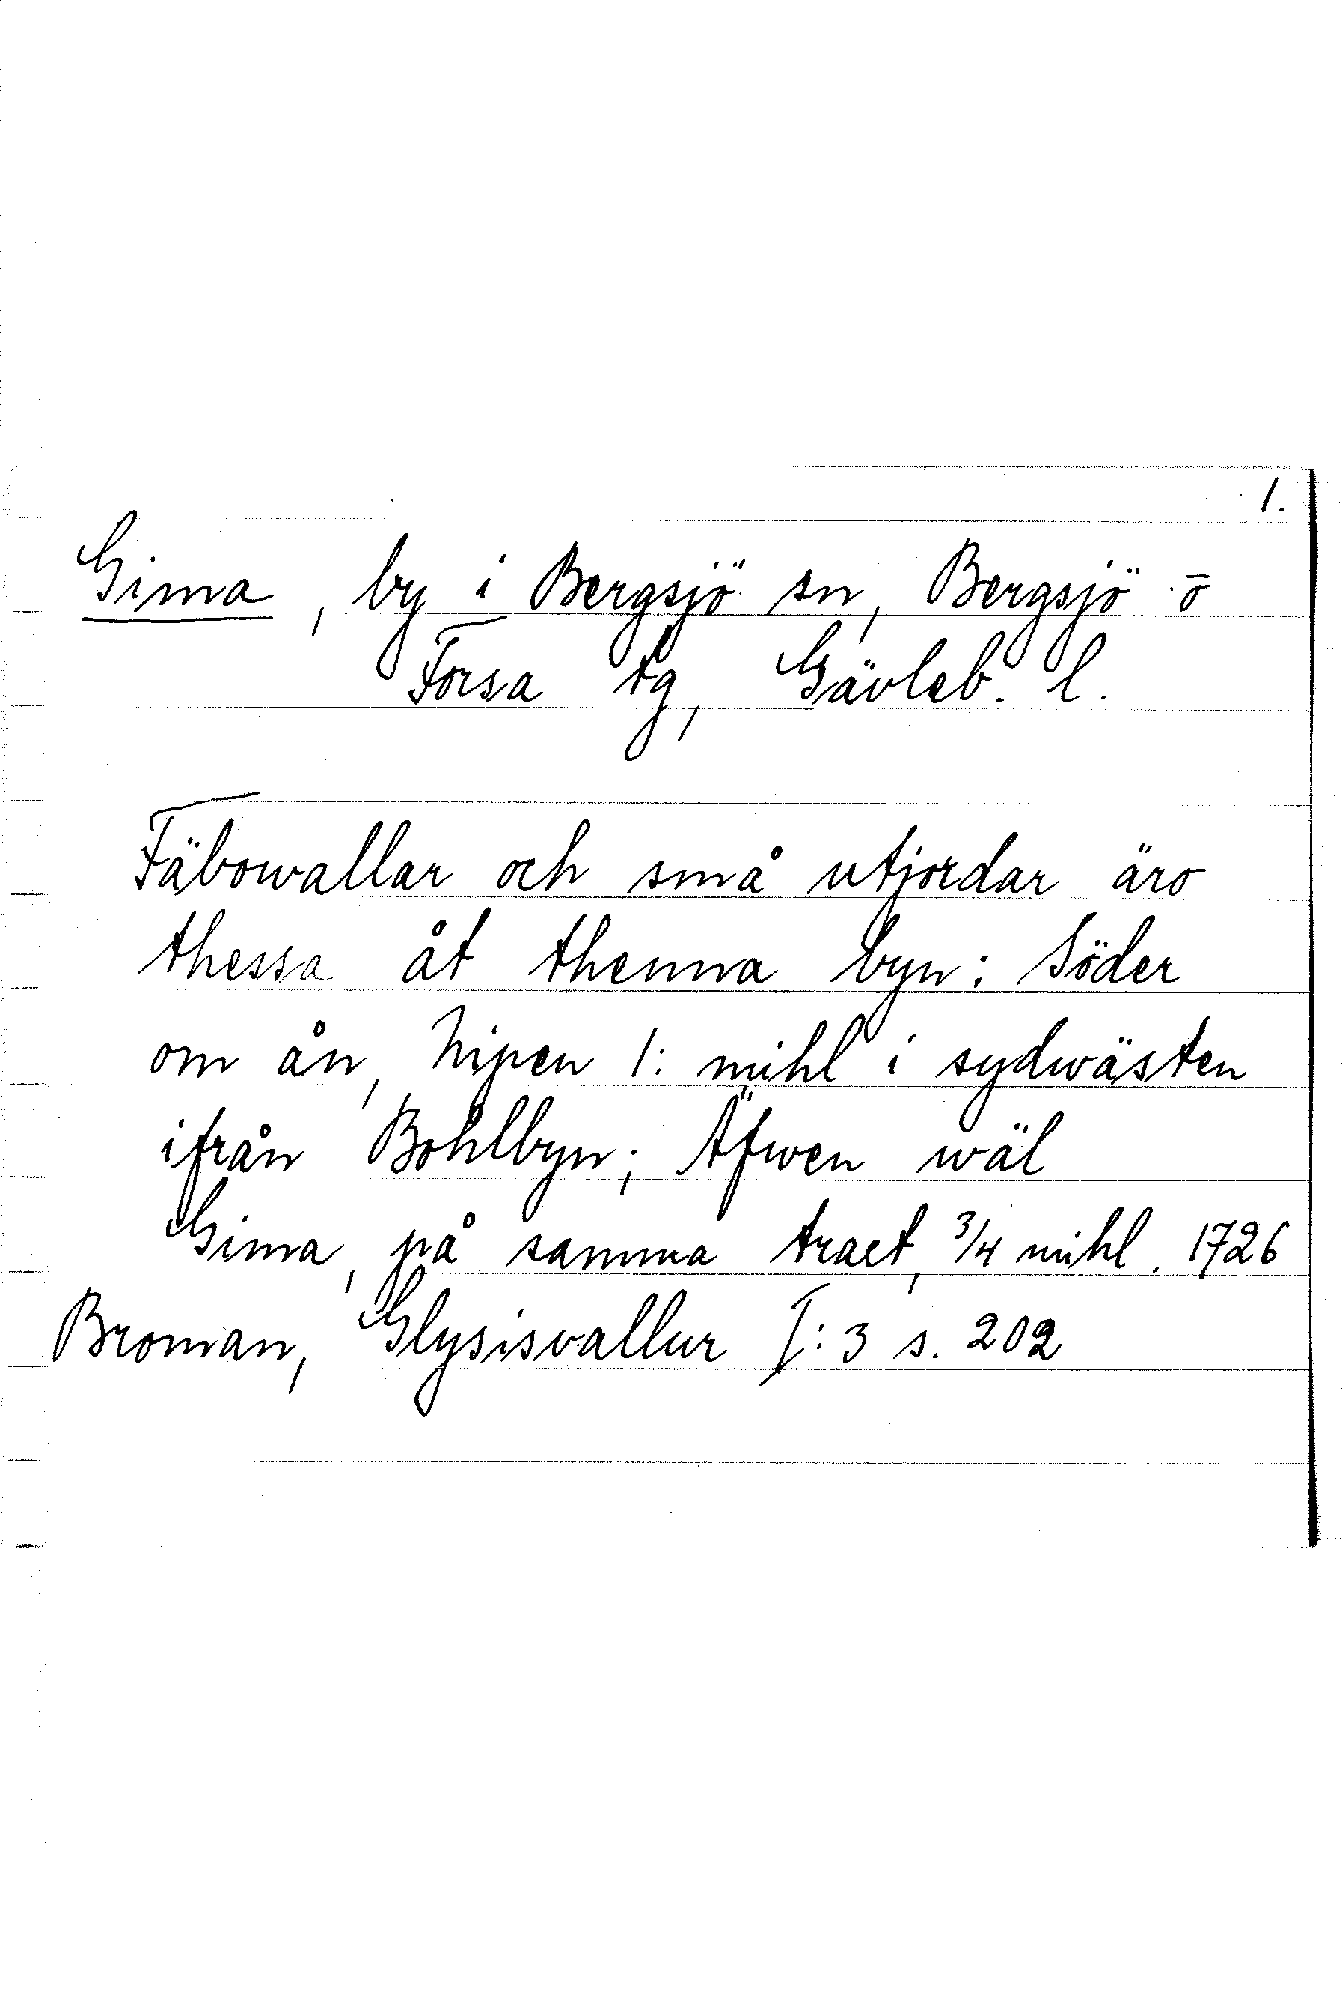 1.
Gima, by i Bergsjö sn, Bergsjö o
Forsa tg, Gävleb. l.
Fäbowallar och små utjordar äro
thessa åt thenna byn: Söder
om ån, Nipen 1: mihl i sydwästen
ifrån Bohlbyn; Äfwen wäl
Gima, på samma tract, 3/4 mihl. 1726
Broman, Glysisvallur I: 3 s. 202